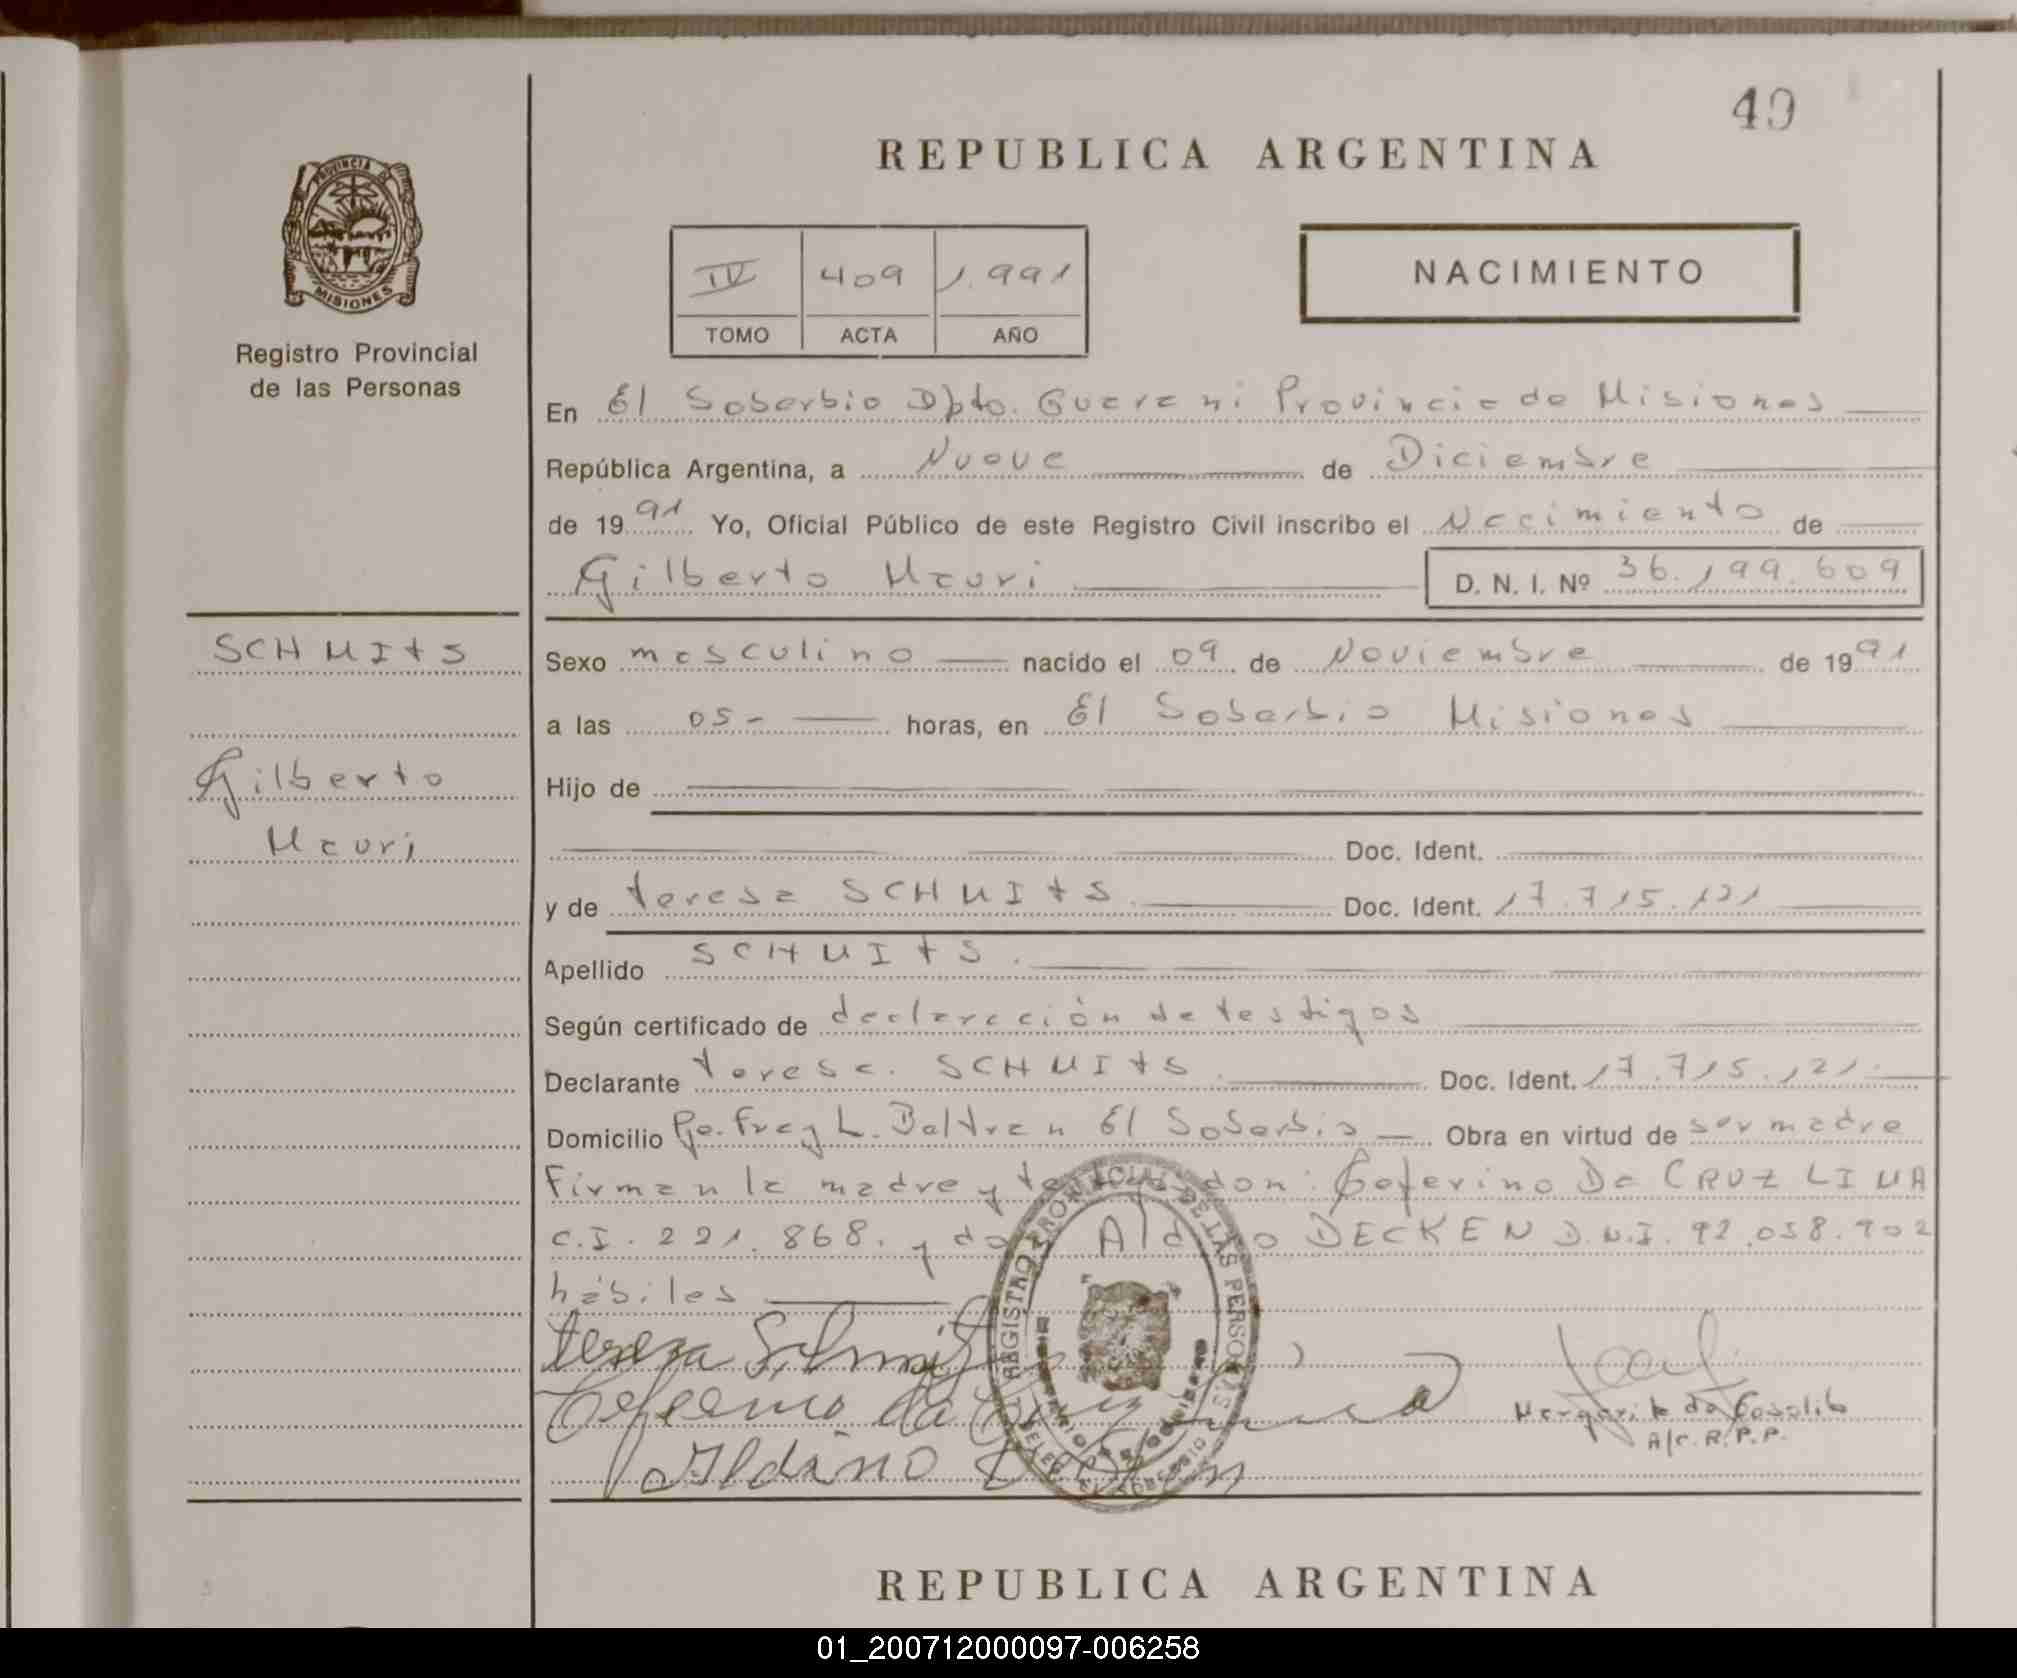 49
REPUBLICA ARGENTINA
PROVINCIA DE
MISIONES
Registro Provincial
de las Personas
IV 409 1.991
TOMO ACTA AÑO
NACIMIENTO
En El Soberbio Dpto. Guarani Provincia de Misiones
República Argentina, a Nueve de Diciembre
de 1991 Yo, Oficial Público de este Registro Civil inscribo el Nacimiento de
Gilberto Mauri D. N. I. Nº 36.199.609
SCHMIts
Gilberto
Mauri
Sexo masculino nacido el 09 de Noviembre de 1991
a las 05- horas, en El Soberbio Misiones
Hijo de
Doc. Ident.
y de teresa SCHMIts. Doc. Ident. 17.715.121
Apellido SCHMIts.
Según certificado de declaración de testigos
Declarante teresa. SCHMIts. Doc. Ident. 17.715.121.
Domicilio Pje. Fray L. Beltran El Soberbio Obra en virtud de ser madre
Firman la madre y testigos don: Ceferino Da CRUZ LIMA
C.I. 221.868. y don Aldino DECKEN D.N.I. 92.058.902
hábiles
tereza Schmits
Ceferino da Cruz Lima
Aldino Decken
REGISTRO PROVINCIAL DE LAS PERSONAS
Margarita da
A/C. R.P.P.
REPUBLICA ARGENTINA
01_200712000097-006258